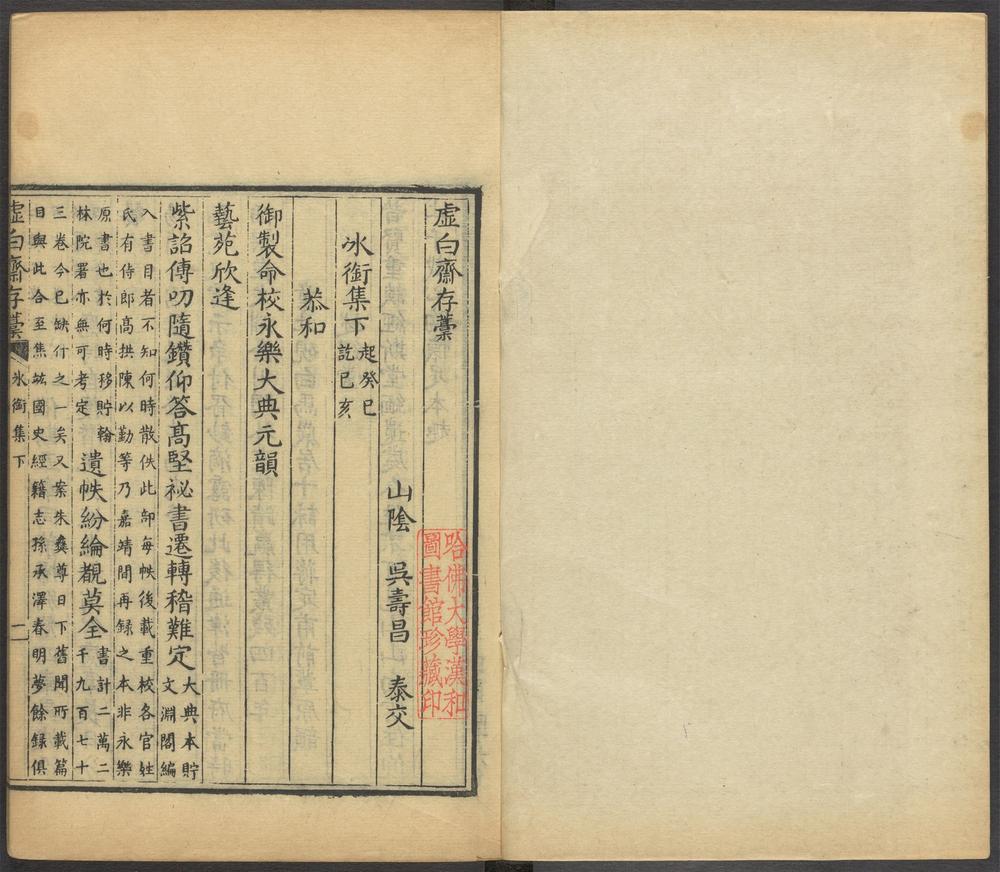 虚白齋存藁
山陰 吳壽昌 泰交
冰銜集下 起癸巳
訖己亥
恭和
御製命校永樂大典元韻
藝苑欣逢
紫詔傳叨隨鑽仰答髙堅祕書遷轉稽難定 大典本貯
文淵閣編
入書目者不知何時散佚此部每帙後載重校各官姓
氏有侍郎髙拱陳以勤等乃嘉靖間再録之本非永樂
原書也於何時移貯翰
林院署亦無可考定
遺帙紛綸覩莫全 書計二萬二
千九百七十
三卷今已缺什之一矣又案朱彝尊日下舊聞所載篇
目與此合至焦竑國史經籍志孫承澤春明夢餘録俱
虚白齋存藁 冰銜集下 一
哈佛大學漢和
圖書館珍藏印